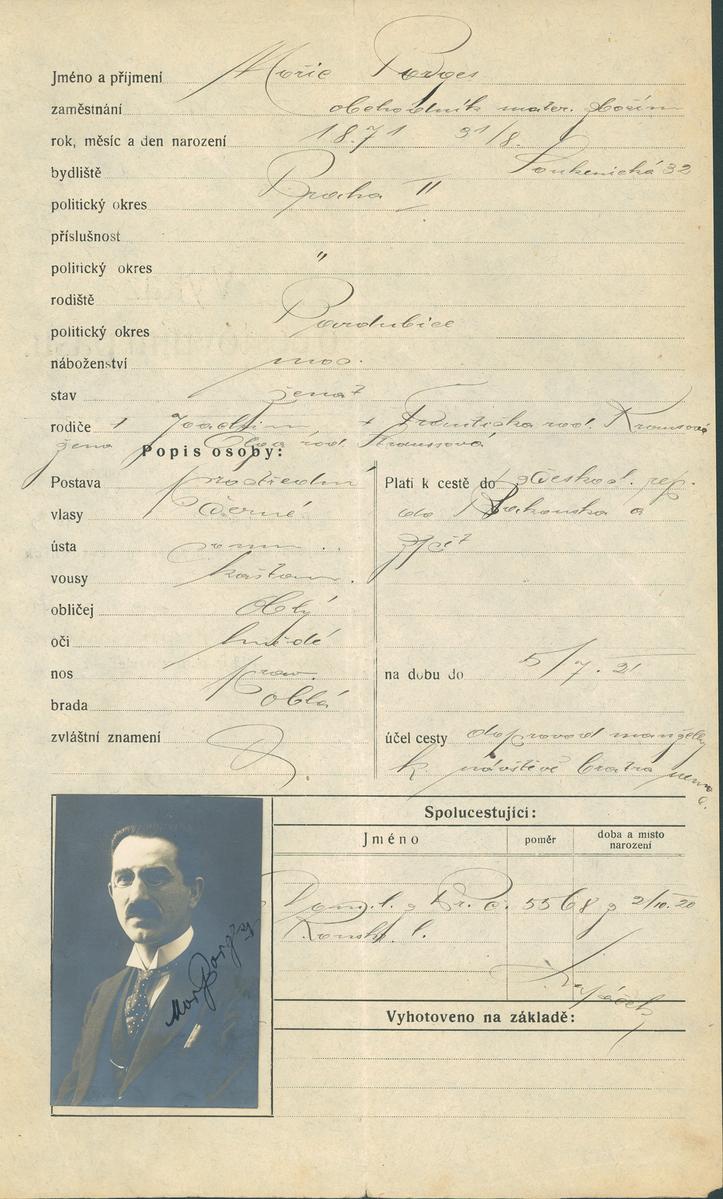 Jméno a příjmení Mořic Porges
zaměstnání obchodník mater. zbožím
rok, měsíc a den narození 1871 31/8.
bydliště Soukenická 32
politický okres Praha II
příslušnost
politický okres "
rodiště
politický okres Pardubice
náboženství mos.
stav ženat
rodiče + Joachim + Františka rod. Krausová
žena Olga rod. Straussová
Popis osoby:
Postava prostřední
vlasy černé
ústa
vousy kaštan.
obličej oblý
oči hnědé
nos prav.
brada oblá
zvláštní znamení
Platí k cestě do z českosl. rep.
do Rakouska a
zpět
na dobu do 5/7. 21
účel cesty doprovod manželky
k návštěvě bratra
Spolucestující:
Jméno poměr doba a místo narození
Dom. l. z Pr. č. 5568 z 2/10.20
l.
Vyhotoveno na základě:
Mor Porges